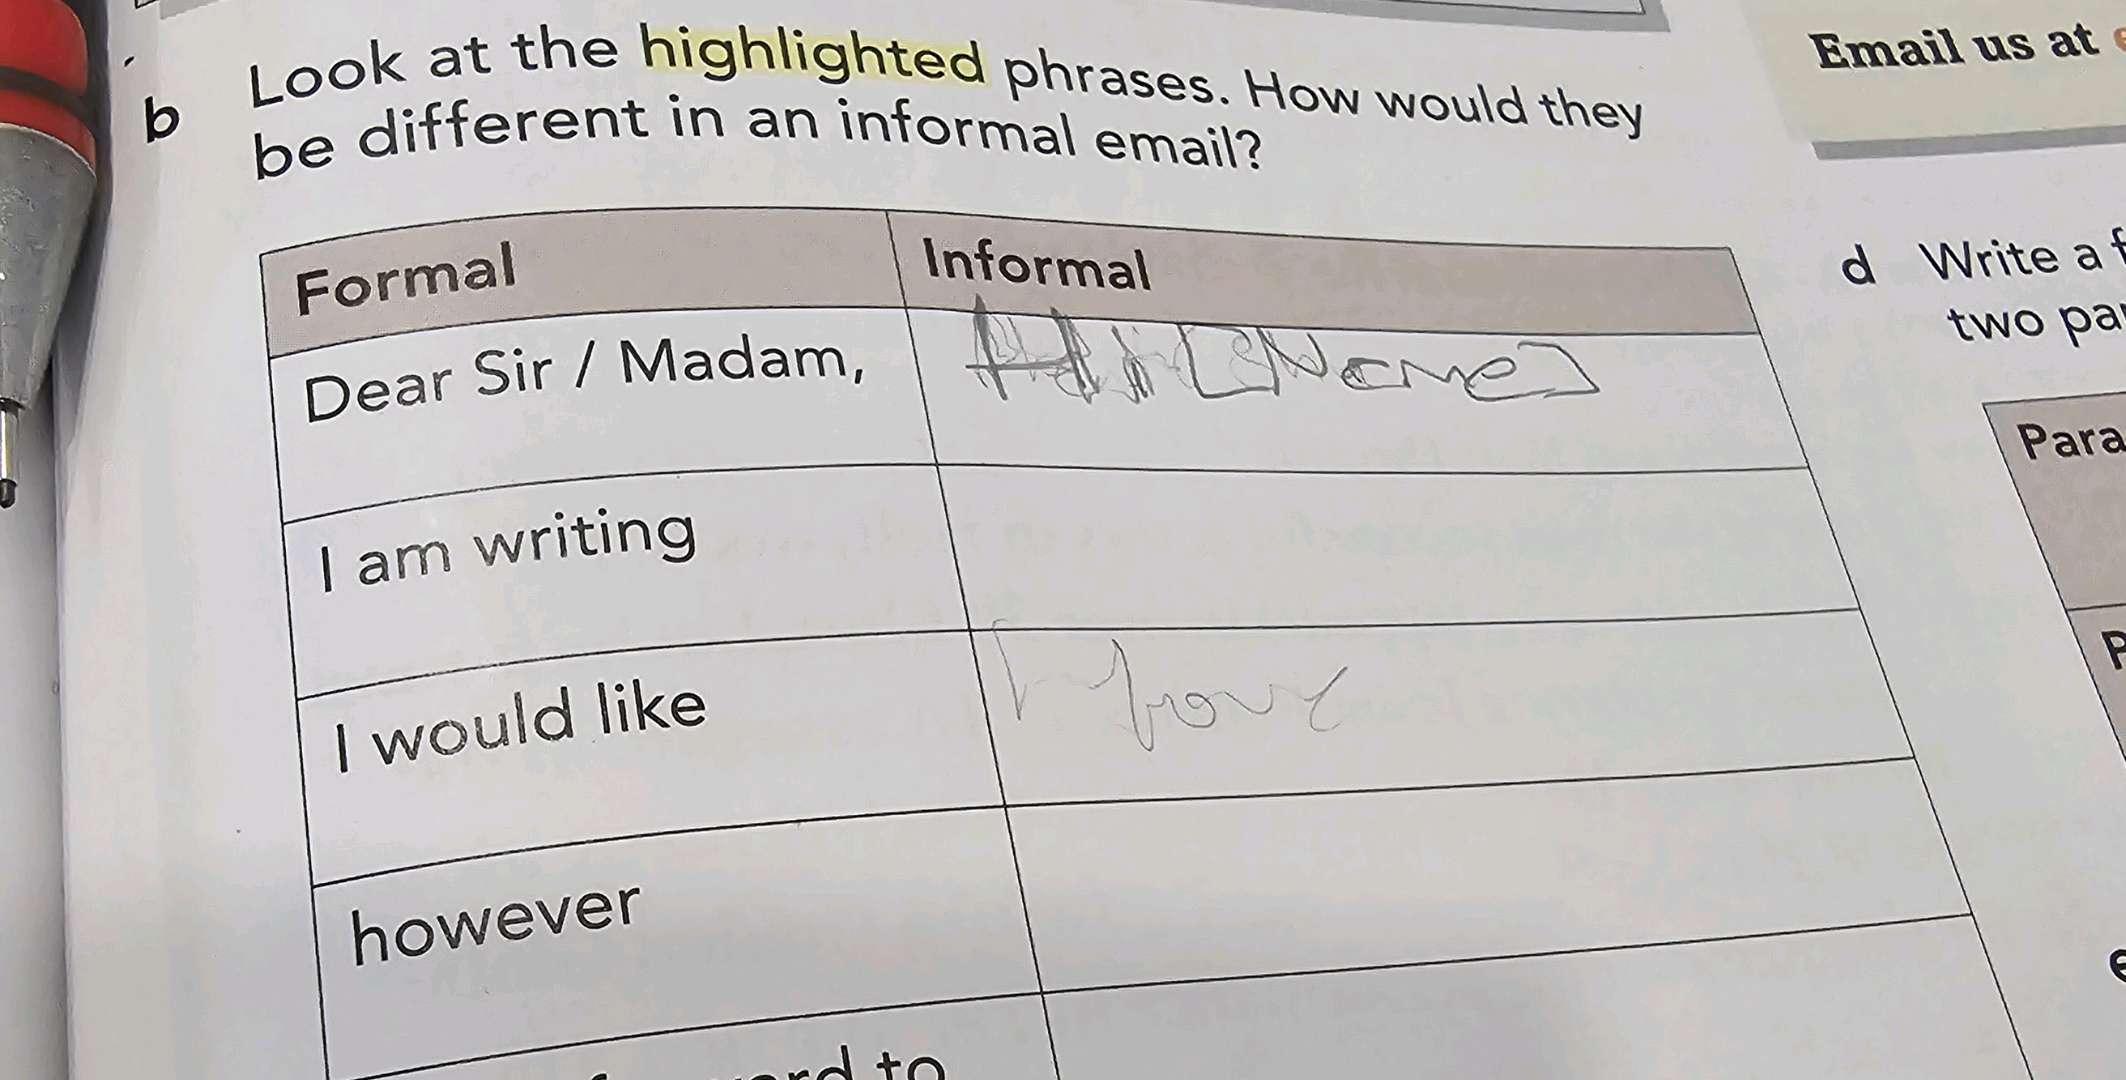 Email us at
b Look at the highlighted phrases. How would they
be different in an informal email?
Formal
Informal
Dear Sir / Madam,
Hi [Name]
I am writing
I would like
I
however
to
d Write a
two